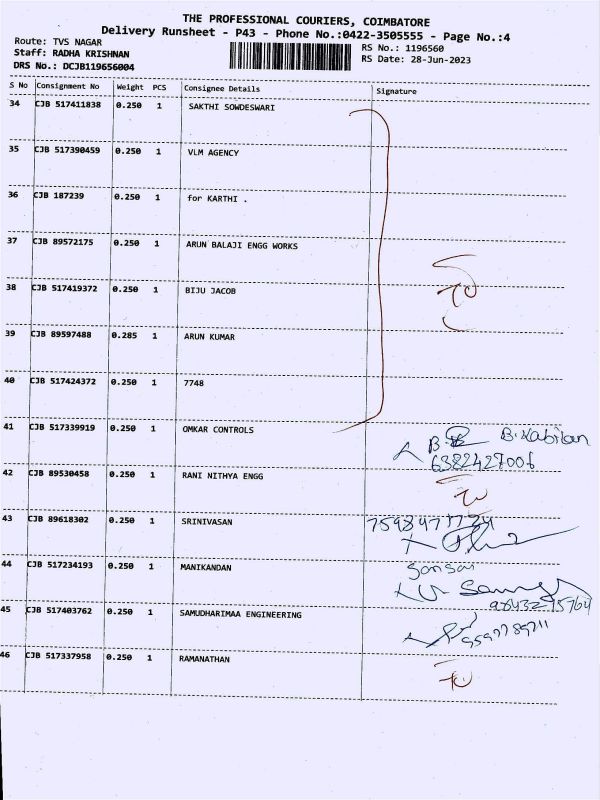 THE PROFESSIONAL COURIERS, COIMBATORE
Delivery Runsheet - P43 - Phone No.:0422-3505555 - Page No.:4
Route: TVS NAGAR
Staff: RADHA KRISHNAN
DRS No.: DCJB119656004
RS No.: 1196560
RS Date: 28-Jun-2023
S No Consignment No Weight PCS Consignee Details Signature
34 CJB 517411838 0.250 1 SAKTHI SOWDESWARI
35 CJB 517390459 0.250 1 VLM AGENCY
36 CJB 187239 0.250 1 for KARTHI .
37 CJB 89572175 0.250 1 ARUN BALAJI ENGG WORKS
38 CJB 517419372 0.250 1 BIJU JACOB
39 CJB 89597488 0.285 1 ARUN KUMAR
40 CJB 517424372 0.250 1 7748
41 CJB 517339919 0.250 1 OMKAR CONTROLS
B.Kabilan
6382427006
42 CJB 89530458 0.250 1 RANI NITHYA ENGG
43 CJB 89618302 0.250 1 SRINIVASAN
44 CJB 517234193 0.250 1 MANIKANDAN
45 CJB 517403762 0.250 1 SAMUDHARIMAA ENGINEERING
46 CJB 517337958 0.250 1 RAMANATHAN